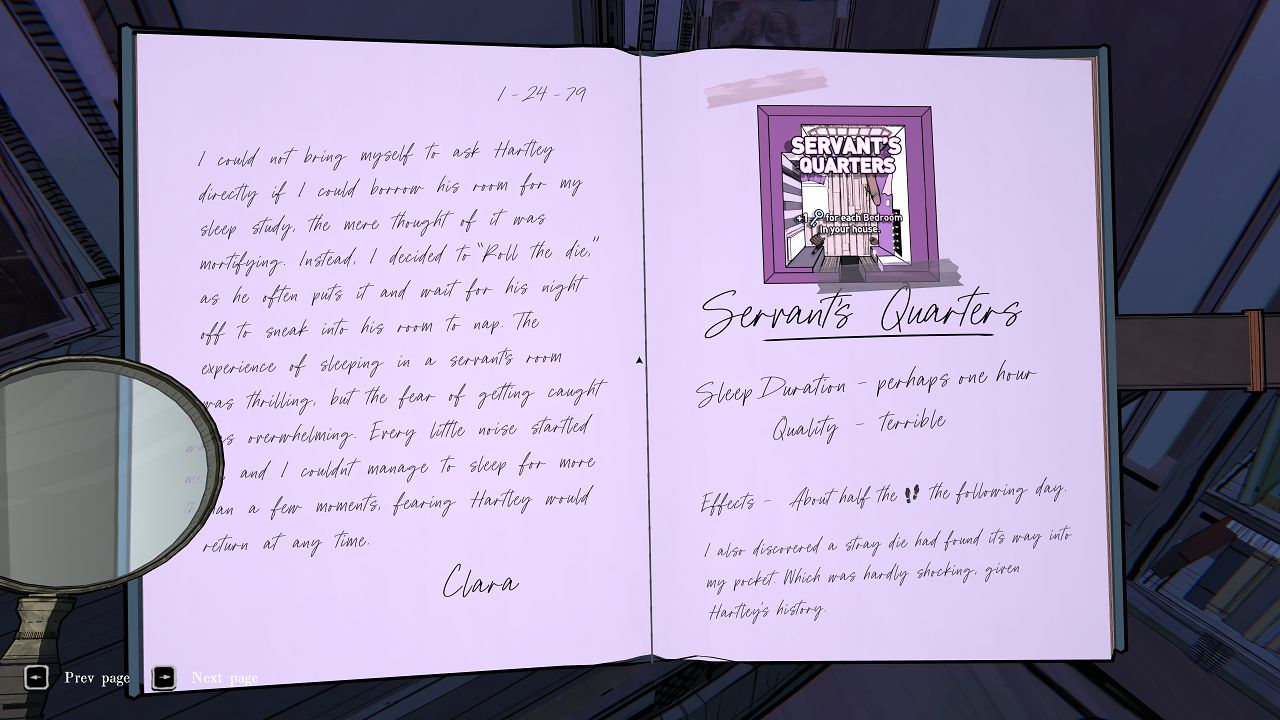 1-24-79
I could not bring myself to ask Hartley
directly if I could borrow his room for my
sleep study, the mere thought of it was
mortifying. Instead, I decided to "Roll the die,"
as he often puts it and wait for his night
off to sneak into his room to nap. The
experience of sleeping in a servant's room
was thrilling, but the fear of getting caught
was overwhelming. Every little noise startled
me, and I couldn't manage to sleep for more
than a few moments, fearing Hartley would
return at any time.
Clara
SERVANT'S
QUARTERS
+1 for each Bedroom
in your house.
Servant's Quarters
Sleep Duration - perhaps one hour
Quality - terrible
Effects - About half the the following day.
I also discovered a stray die had found its way into
my pocket. Which was hardly shocking, given
Hartley's history.
Prev page
Next page